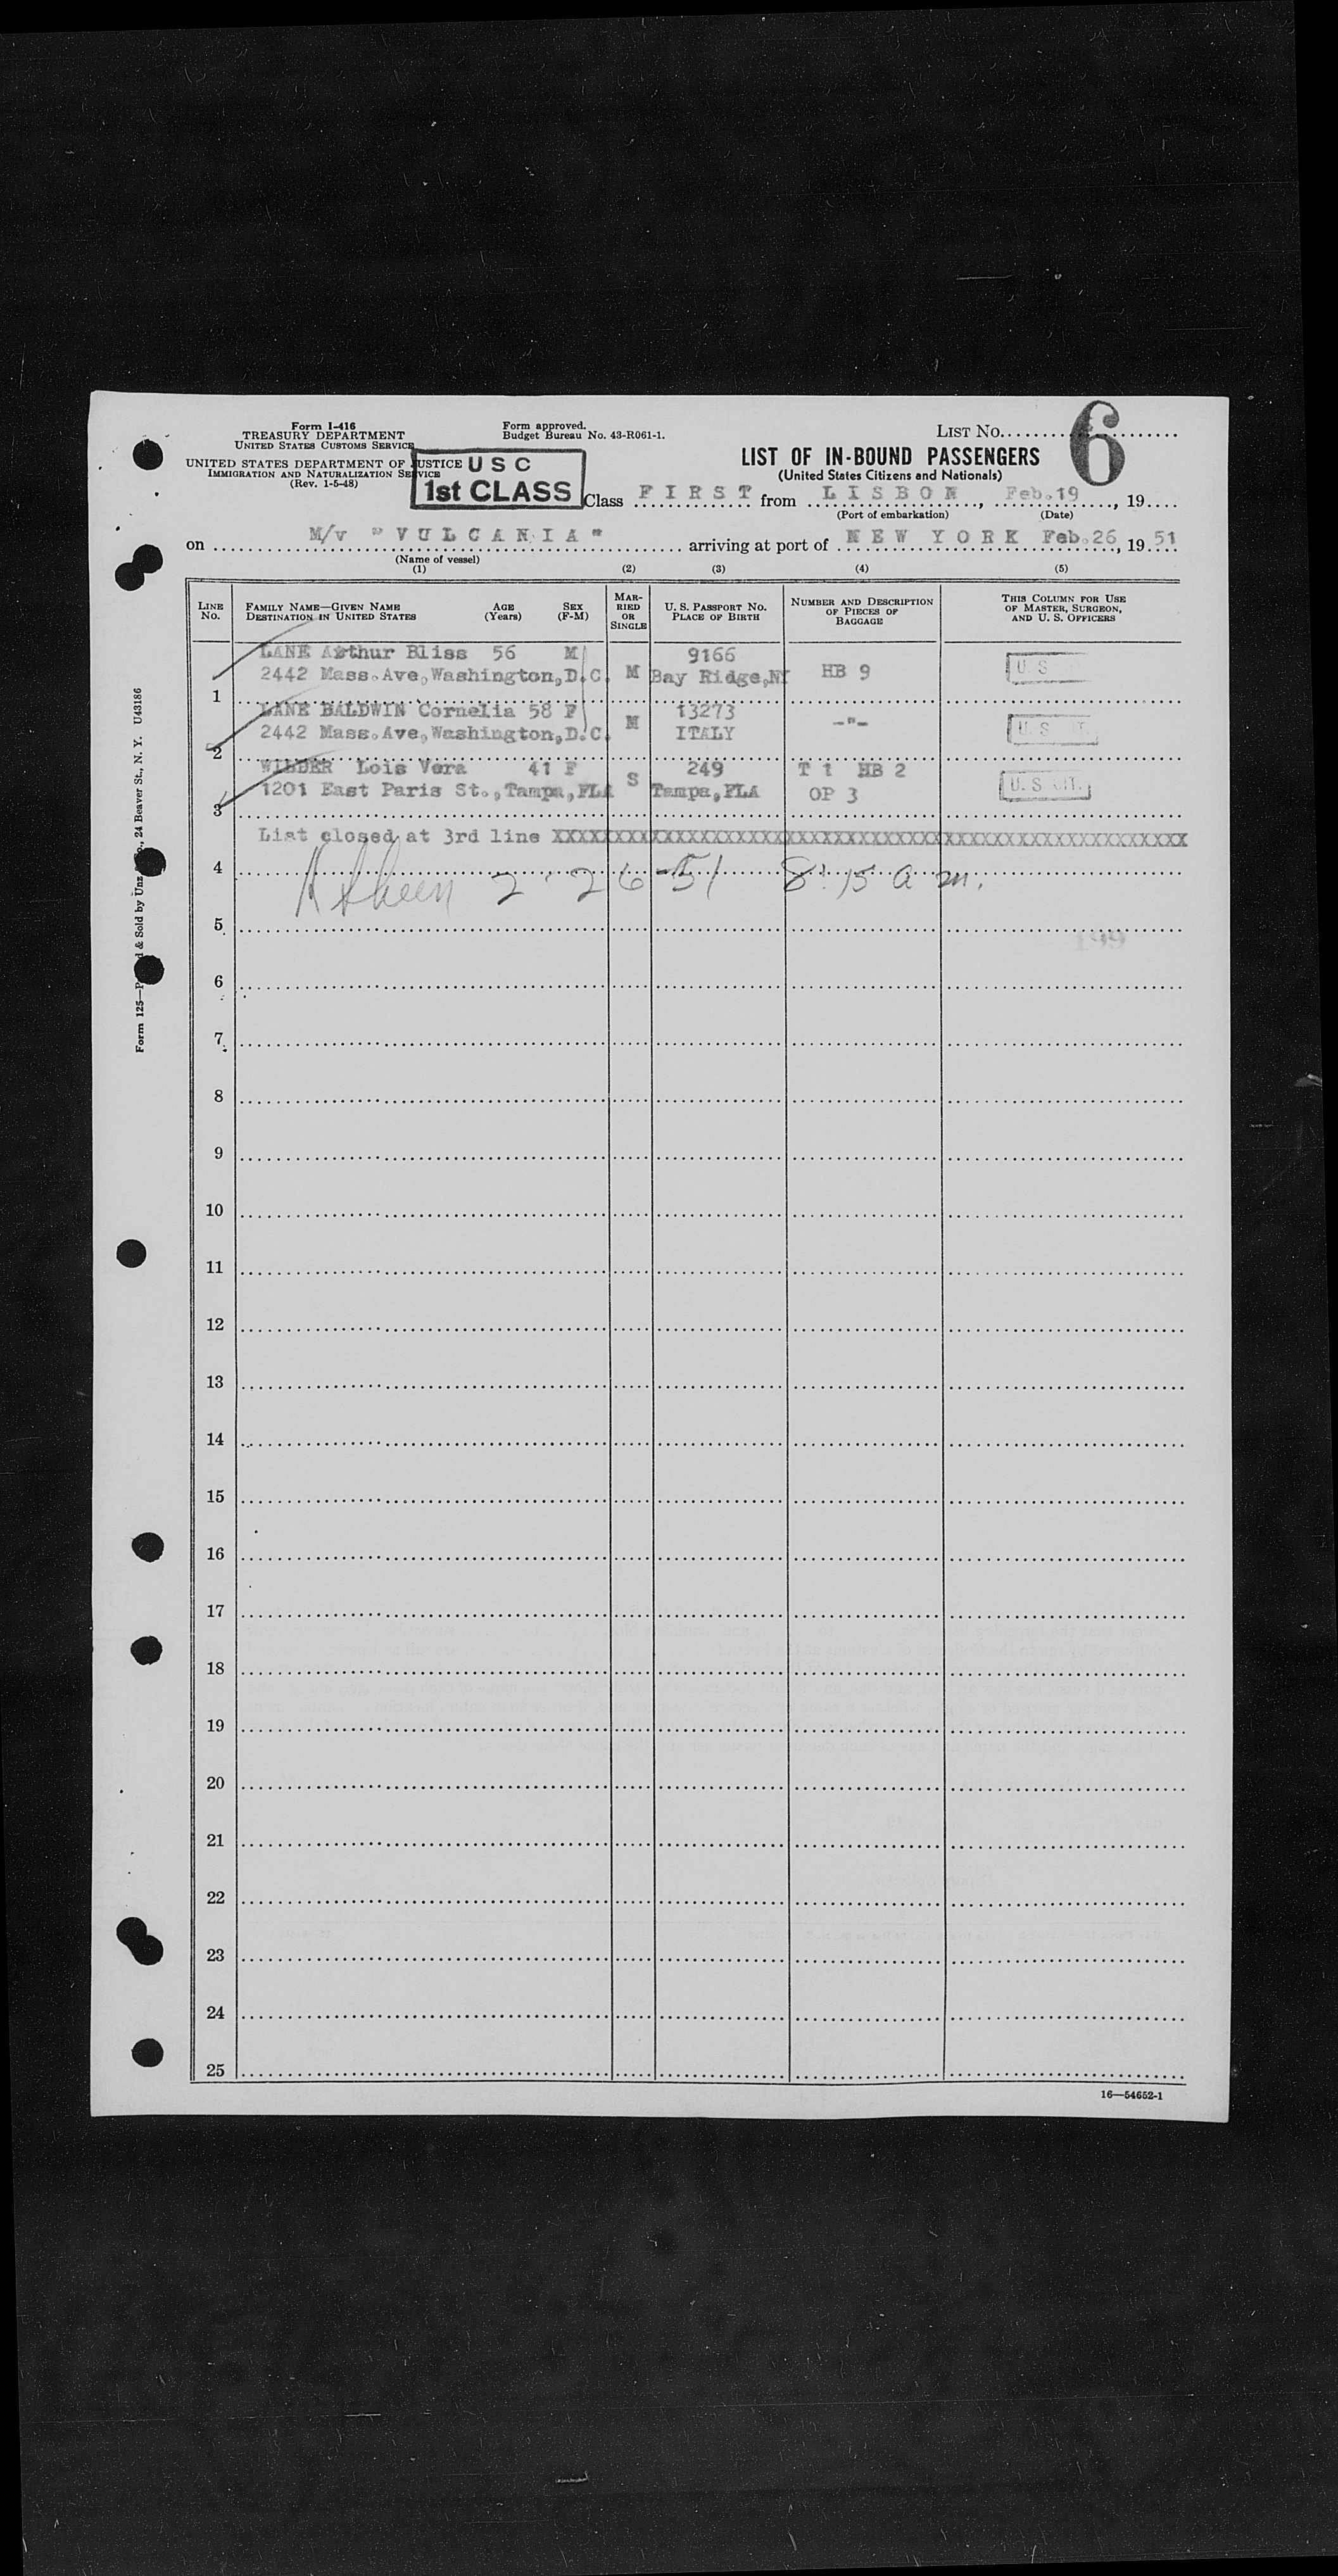 Form I-416
TREASURY DEPARTMENT
UNITED STATES CUSTOMS SERVICE
UNITED STATES DEPARTMENT OF JUSTICE
IMMIGRATION AND NATURALIZATION SERVICE
(Rev. 1-5-48)
Form approved.
Budget Bureau No. 43-R061-1.
U S C
1st CLASS
LIST No. 6
LIST OF IN-BOUND PASSENGERS
(United States Citizens and Nationals)
Class F I R S T from L I S B O N, Feb.19, 19
(Port of embarkation) (Date)
on M/v "V U L C A N I A" arriving at port of N E W Y O R K Feb.26, 19 51
(Name of vessel)
(1) (2) (3) (4) (5)
LINE No.
FAMILY NAME—GIVEN NAME
DESTINATION IN UNITED STATES
AGE (Years)
SEX (F-M)
MARRIED OR SINGLE
U. S. PASSPORT No.
PLACE OF BIRTH
NUMBER AND DESCRIPTION OF PIECES OF BAGGAGE
THIS COLUMN FOR USE OF MASTER, SURGEON, AND U. S. OFFICERS
LANE Arthur Bliss 56 M 9166
1 2442 Mass.Ave,Washington,D.C. M Bay Ridge,NY HB 9 U S
LANE BALDWIN Cornelia 58 F 13273
2 2442 Mass.Ave,Washington,D.C. M ITALY -"- U. S
WILDER Lois Vera 41 F 249 T 1 HB 2
3 1201 East Paris St.,Tampa,FLA S Tampa,FLA OP 3 U. S CIT.
List closed at 3rd line XXXXXXXXXXXXXXXXXXXXXXXXXXXXXXXXXXXXXXXXXXXXXXXXXXXXXXXXXXXX
4
2-26-51 8:15 a m.
5
199
6
7
8
9
10
11
12
13
14
15
16
17
18
19
20
21
22
23
24
25
16—54652-1
Form 125— & Sold by Unz 24 Beaver St., N. Y. U43186